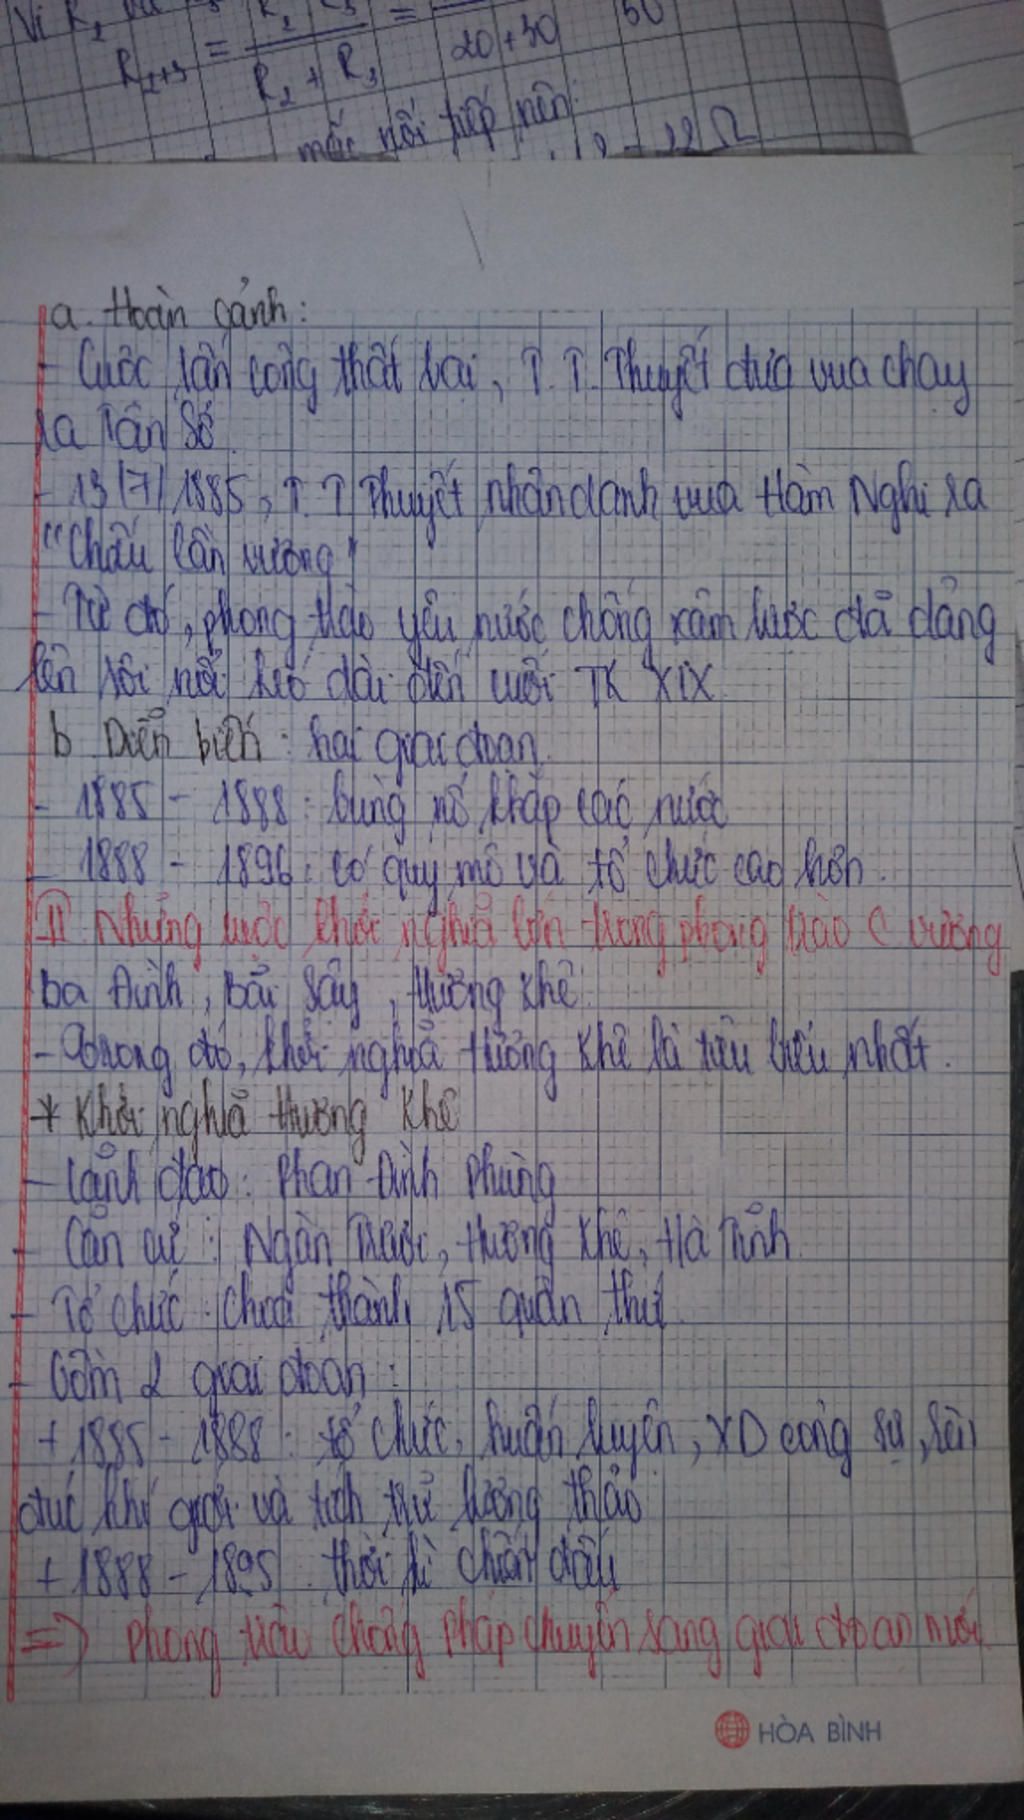 Vì R2
R2+3 = R2 R3 / R2 + R3 = / 20+30 50
mắc nối tiếp nên:
a. Hoàn cảnh:
- Cuộc tấn công thất bại, T. T. Thuyết đưa vua chạy
ra Tân Sở.
- 13/7/1885, T. T Thuyết nhân danh vua Hàm Nghi ra
"Chiếu Cần vương"
- Từ đó, phong trào yêu nước chống xâm lược đã dâng
lên sôi nổi kéo dài đến cuối TK XIX.
b Diễn biến: hai giai đoạn.
- 1885 - 1888: bùng nổ khắp các nước
- 1888 - 1896: có quy mô và tổ chức cao hơn.
II. Những cuộc khởi nghĩa lớn trong phong trào C vương
Ba Đình, Bãi Sậy, Hương Khê.
- Trong đó, khởi nghĩa Hương Khê là tiêu biểu nhất.
* Khởi nghĩa Hương Khê
- Lãnh đạo: Phan Đình Phùng
- Căn cứ: Ngàn Trươi, Hương Khê, Hà Tĩnh.
- Tổ chức: chia thành 15 quân thứ.
- Gồm 2 giai đoạn:
+ 1885 - 1888: tổ chức, huấn luyện, XD công sự, rèn
đúc khí giới và tích trữ lương thảo
+ 1888 - 1895: thời kì chiến đấu
=> phong trào chống Pháp chuyển sang giai đoạn mới.
HÒA BÌNH